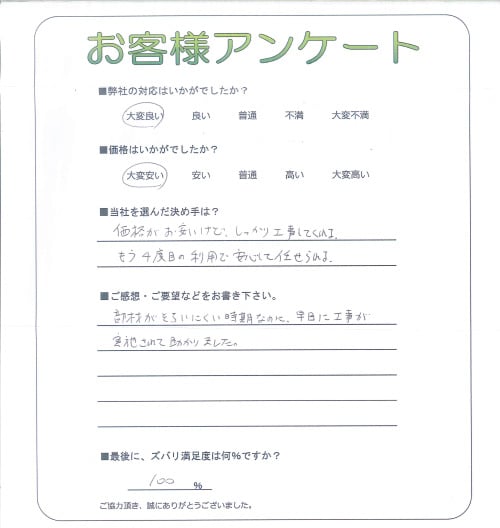 お客様アンケート
■弊社の対応はいかがでしたか？
大変良い 良い 普通 不満 大変不満
■価格はいかがでしたか？
大変安い 安い 普通 高い 大変高い
■当社を選んだ決め手は？
価格がお安いけど、しっかり工事してくれる。
もう4度目の利用で安心して任せられる。
■ご感想・ご要望などをお書き下さい。
部材がそろいにくい時期なのに、早目に工事が
実施されて助かりました。
■最後に、ズバリ満足度は何%ですか？
100 %
ご協力頂き、誠にありがとうございました。